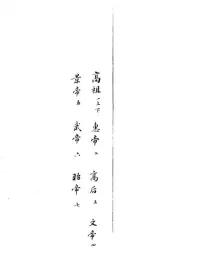 高祖一上下 惠帝二 高后三 文帝四
景帝五 武帝六 昭帝七